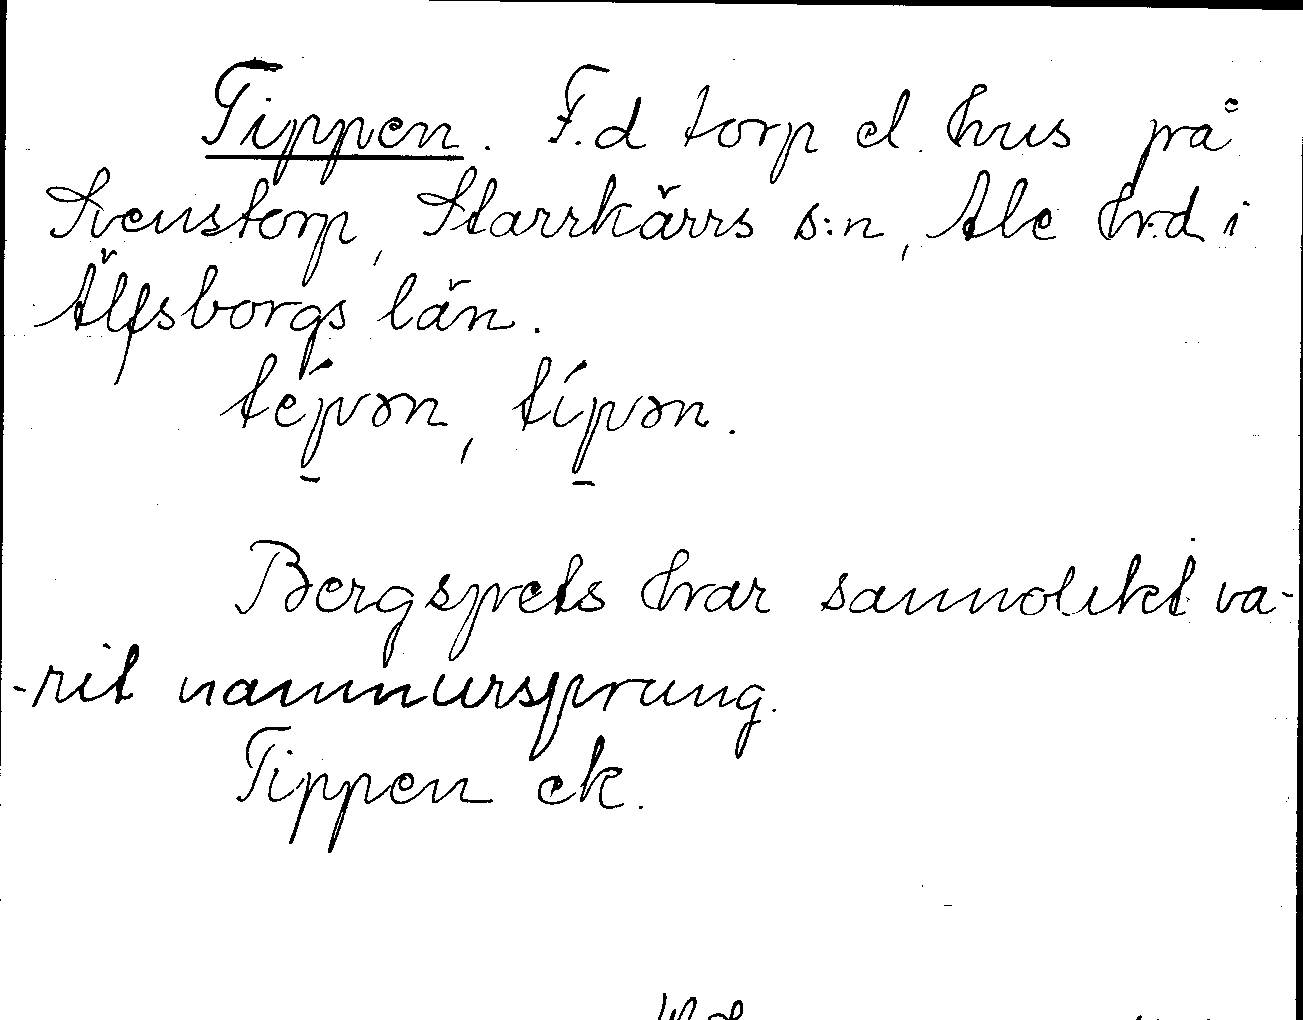 Tippen. F.d torp el. hus på
Svenstorp, Starrkärrs s:n, Ale hrd i
Älfsborgs län.
tép̠ən, típ̠ən.
Bergspets har sannolikt va-
-rit namnursprung.
Tippen ek.